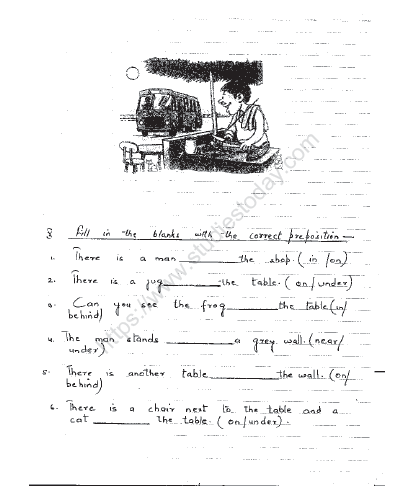 Q Fill in the blanks with the correct preposition—
1. There is a man ________ the shop. (in /on)
2. There is a jug ________ the table. (on/under)
3. Can you see the frog ________ the table (in/
behind)
4. The man stands ________ a grey wall. (near/
under)
5. There is another table ________ the wall. (on/
behind)
6. There is a chair next to the table and a
cat ________ the table. (on/under).
https://www.studiestoday.com